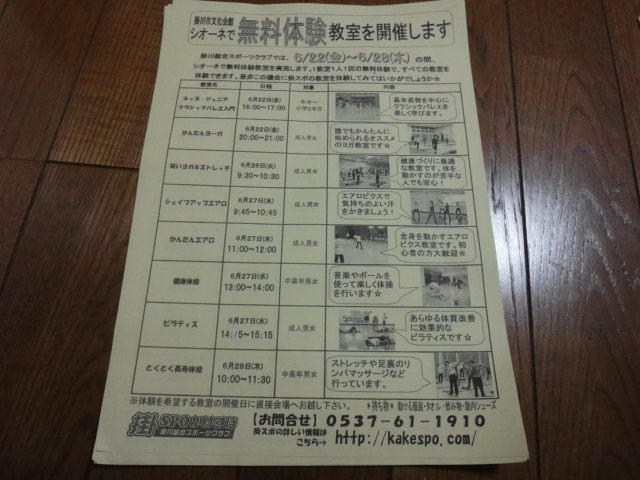 掛川市文化会館
シオーネで 無料体験 教室を開催します
掛川総合スポーツクラブでは、6/22(金)～6/28(木)の間、
シオーネで無料体験教室を実施します。1教室1人1回の無料体験で、すべての教室を
体験できます。是非この機会に掛スポの教室を体験してみてはいかがでしょうか☆
教室名 日程 対象 内容
キッズ・ジュニア
クラシックバレエ入門
6月22日(金)
16:00～17:00
年中～
小学2年生
基本姿勢を中心に
クラシックバレエを
楽しく学びます。
かんたんヨーガ
6月22日(金)
20:00～21:00
成人男女
誰でもかんたんに
始められるオススメ
のヨガ教室です☆
弱いヨガ&ストレッチ
9:30～10:30
成人男女
健康づくりに最適
な教室です。体を
動かすのが苦手な
人でも安心!
シェイプアップエアロ
6月27日(水)
9:45～10:45
成人男女
エアロビクスで
気持ちのよい汗
をかきましょう!
かんたんエアロ
6月27日(水)
11:00～12:00
成人男女
全身を動かすエアロ
ビクス教室です。初
心者の方大歓迎☆
健康体操
6月27日(水)
13:00～14:00
中高年男女
音楽やボールを
使って楽しく体操
を行います☆
ピラティス
6月27日(水)
14:15～15:15
成人男女
あらゆる体質改善
に効果的な
ピラティスです☆
とくとく長寿体操
6月28日(木)
10:00～11:30
中高年男女
ストレッチや足裏のリ
ンパマッサージなど
行っています。
※体験を希望する教室の開催日に直接会場へお越し下さい。 *持ち物* 動ける服装・タオル・飲み物・室内シューズ
掛 SPOかけすぽ
掛川総合スポーツクラブ
【お問合せ】 0537-61-1910
掛スポの詳しい情報は
こちら→ http://kakespo.com/